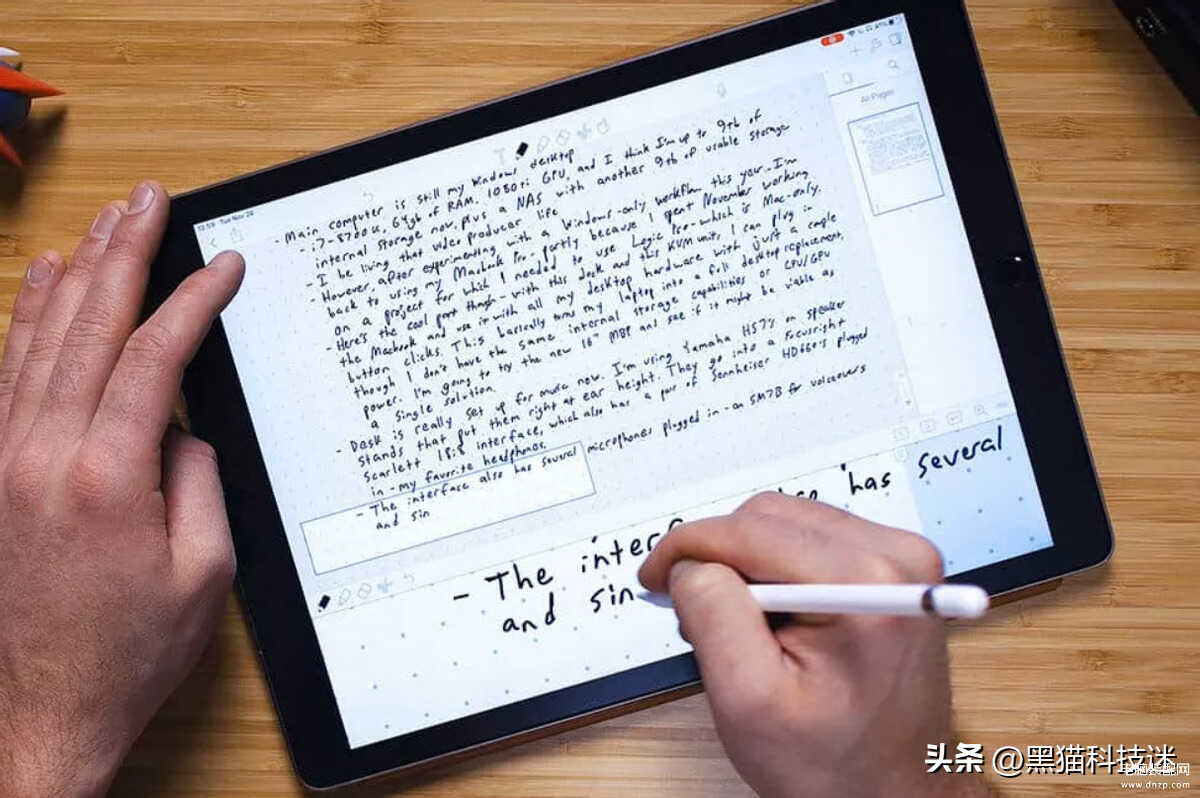 12:59 Tue Nov 26
All Pages
- Main computer is still my windows desktop
- i7-8700K, 64gb of RAM, 1080ti GPU, and I think I'm up to 9tb of
internal storage now, plus a NAS with another 9tb of usable storage
- I be living that video producer life
- However, after experimenting with a Windows-only workflow this year - I'm
back to using my Macbook Pro - partly because I spent November working
on a project for which I needed to use Logic Pro - which is Mac-only.
- Here's the cool part though - with this dock and this KVM unit, I can plug in
the Macbook and use it with all my desktop hardware with just a couple
button clicks. This basically turns my laptop into a full desktop replacement,
though I don't have the same internal storage capabilities or CPU/GPU
power. I'm going to try the new 16" MBP and see if it might be viable as
a single solution.
- Desk is really set up for music now. I'm using Yamaha HS7's on speaker
stands that put them right at ear height. They go into a Focusright
Scarlett 18i8 interface, which also has a pair of Sennheiser HD660's plugged
in - my favorite headphones.
- The interface also has several microphones plugged in - an SM7B for voiceovers
and sin
- The interf has several
and sin
头条 @黑猫科技迷
电脑装配网
www.dnzp.com